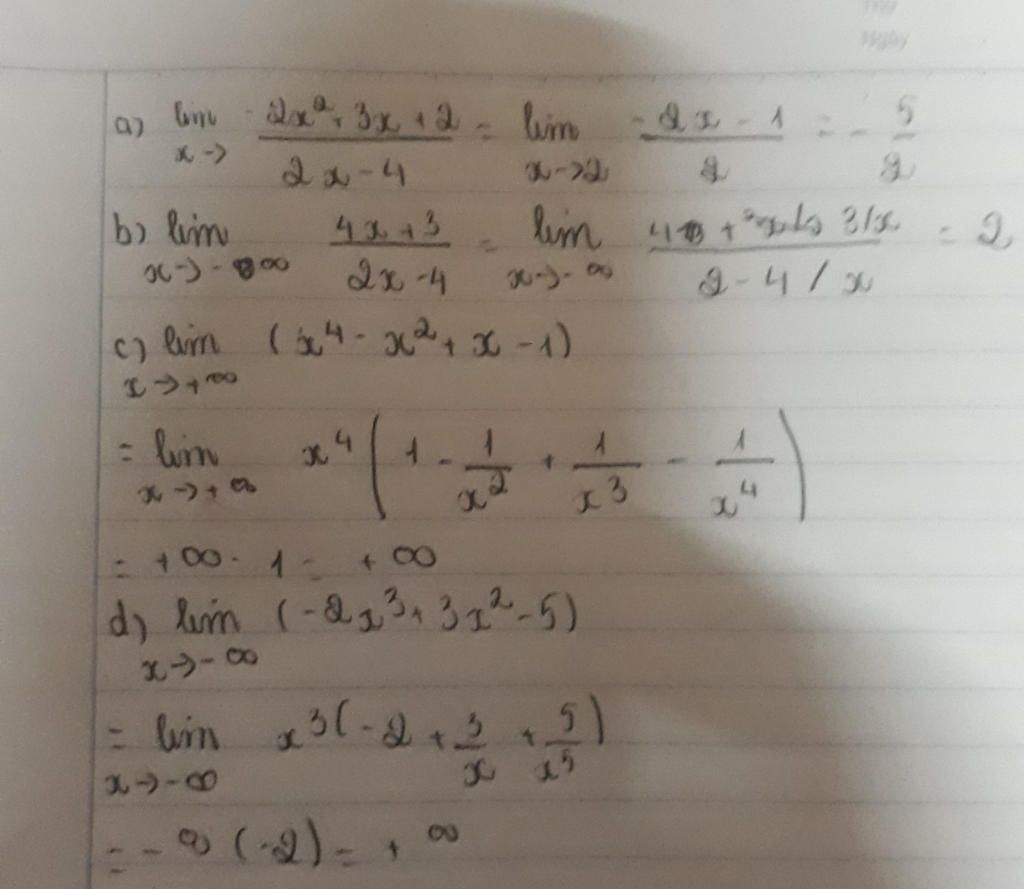 Ngày
a) lim x-> -2x²+3x+2 / 2x-4 = lim x->2 -2x-1 / 2 = - 5/2
b) lim x->-∞ 4x+3 / 2x-4 = lim x->-∞ 4 + 3/x / 2-4/x = 2
c) lim x->+∞ (x⁴ - x² + x - 1)
= lim x->+∞ x⁴ (1 - 1/x² + 1/x³ - 1/x⁴)
= +∞ . 1 = +∞
d) lim x->-∞ (-2x³ + 3x² - 5)
= lim x->-∞ x³(-2 + 3/x + 5/x⁵)
= -∞ (-2) = +∞